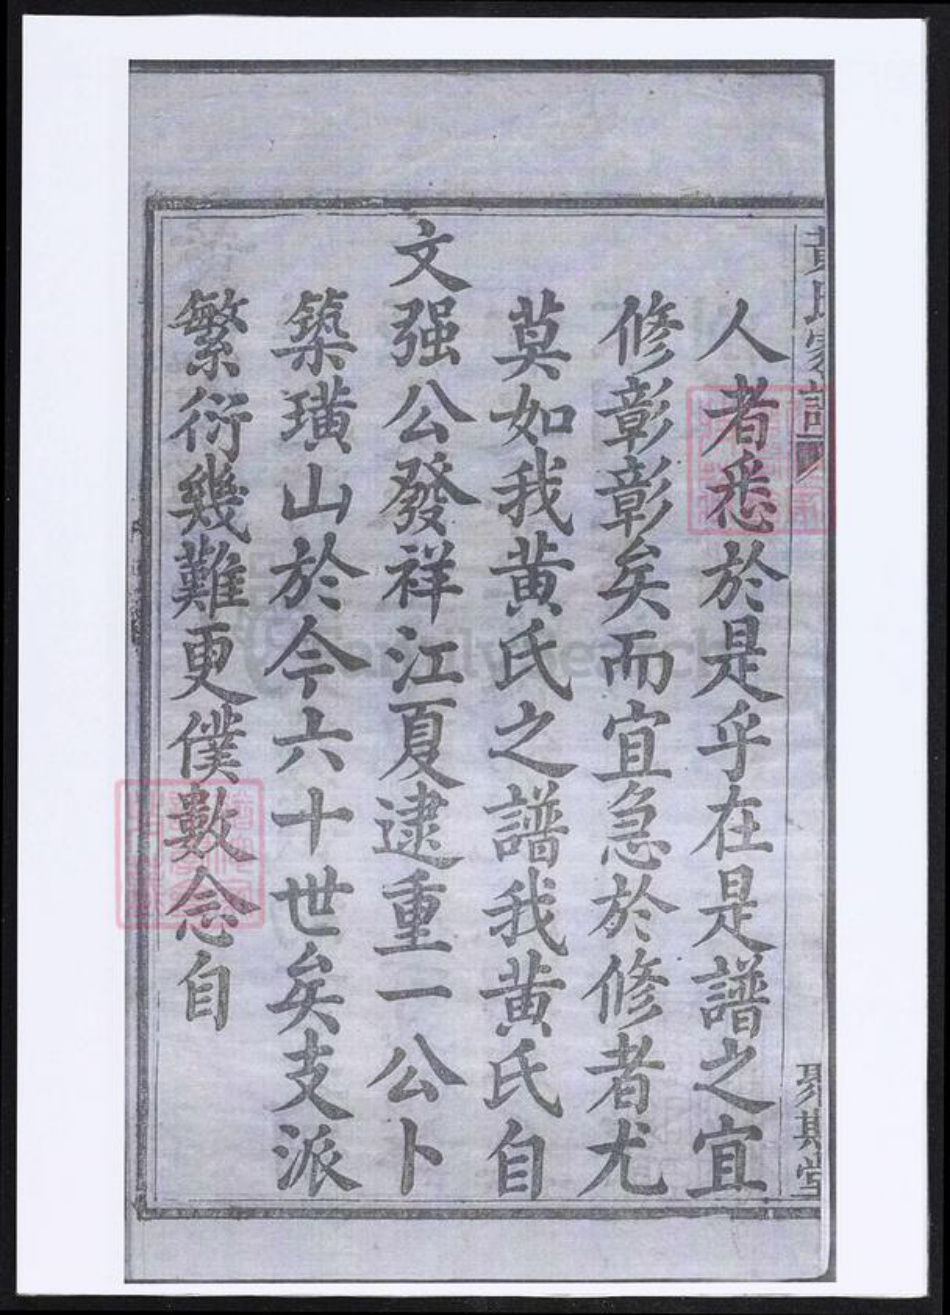 黃氏家譜
螽斯堂
人者悉於是乎在是譜之宜
修彰彰矣而宜急於修者尤
莫如我黄氏之譜我黄氏自
文强公發祥江夏逮重一公卜
築璜山於今六十世矣支派
繁衍幾難更僕數念自